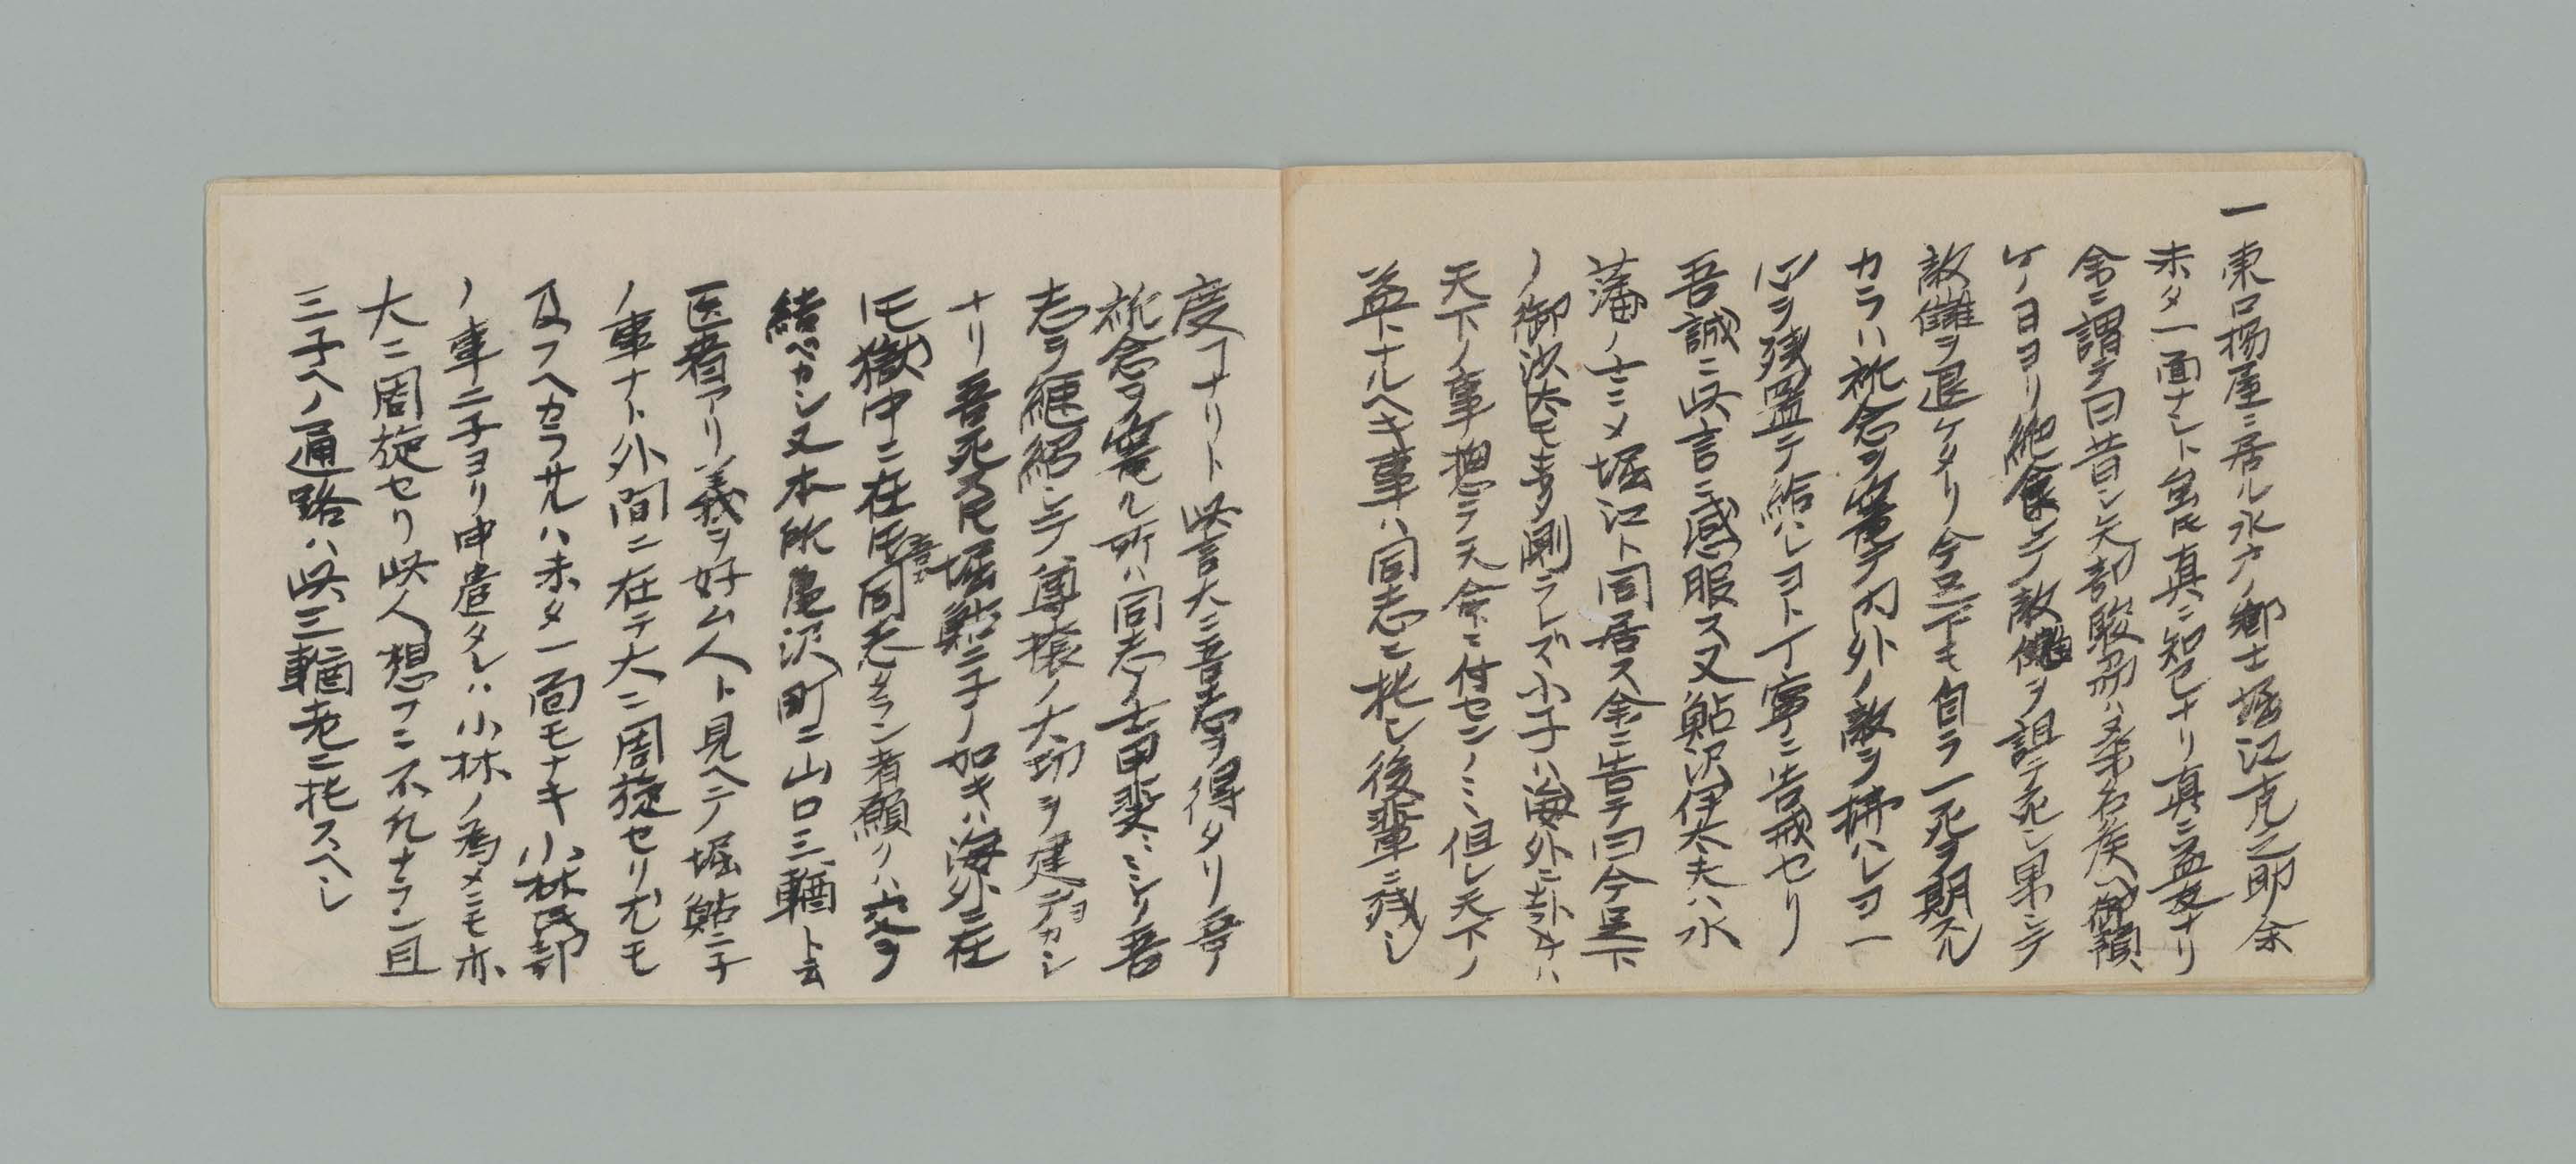 一 東口揚屋ニ居ル水戸ノ郷士堀江克之助余
未タ一面ナシト虽𪜈真ニ知己ナリ真ニ益友ナリ
余ニ謂テ曰昔シ矢部駿州ハ桑名矦ヘ御預
ケノ日ヨリ絶食シテ敵讎ヲ詛テ死シ果シテ
敵讎ヲ退ケタリ今足下モ自ラ一死ヲ期スル
カラハ祈念ヲ篭テ内外ノ敵ヲ拂ハレヨ一
心ヲ残置テ給ハレヨト丁寧ニ告戒セリ
吾誠ニ此言ニ感服ス又鮎沢伊太夫ハ水
藩ノ士ニメ堀江ト同居ス余ニ告テ曰今足下
ノ御沙汰モ未タ測ラレズ小子ハ海外ニ赴ケハ
天下ノ事捴テ天命ニ付センノミ但シ天下ノ
益トナルヘキ事ハ同志ニ托シ後輩ニ残シ
度ヿナリト此言大ニ吾志ヲ得タリ吾
祈念ヲ篭ル所ハ同志ノ士甲斐〻〻シク吾
志ヲ継紹シテ尊攘ノ大功ヲ建テヨカシ
ナリ吾死ス𪜈堀鮎二子ノ如キハ海外ニ在
𪜈獄中ニ在𪜈吾カ同志タラン者願クハ交ヲ
結ベカシ又本所亀沢町ニ山口三輶ト云
医者アリ義ヲ好ム人ト見ヘテ堀鮎二子
ノ事ナト外間ニ在テ大ニ周旋セリ尤モ
及フヘカラサルハ未タ一面モナキ小林民部
ノ事二子ヨリ申遣タレハ小林ノ為メニモ亦
大ニ周旋セリ此人想フニ不凡ナラン且
三子ヘノ通路ハ此三輶老ニ托スヘシ